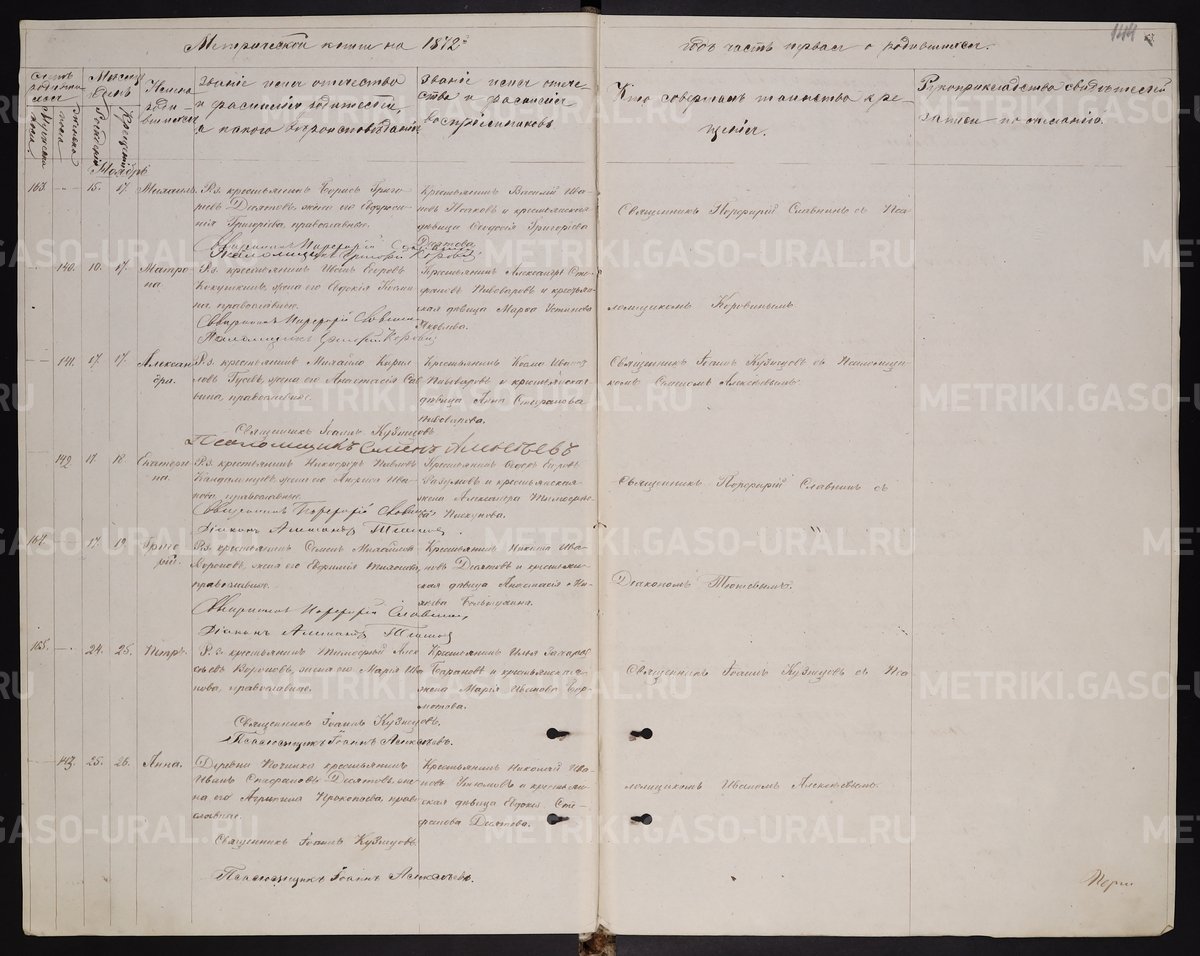 Метрической книги на 1872й
годъ часть первая о родившихся.
144
Счетъ родившихся
Мужеска пола
Женска пола
Месяцъ и день
Рожденія
Крещенія
Имена родившихся
Званіе имя отчество
и фамилія родителей,
и какого вѣроисповѣданія
Званіе имя отче-
ство и фамилія
воспріемниковъ
Кто совершалъ таинство кре-
щенія.
Рукоприкладство свидѣтелей
записи по желанію.
Ноябрь
163. 15. 17. Михаилъ.
Р.з. крестьянинъ Борисъ Григо-
рьевъ Долятовъ, жена его Евфроси-
нія Григорьева, православные.
Священникъ Порфирій Славнинъ
Псаломщикъ Григорій Коровинъ
Крестьянинъ Василій Ива-
новъ Исаковъ и крестьянская
дѣвица Ѳеодосія Григорьева
Долятова.
Священникъ Порфирій Славнинъ съ Пса-
140. 10. 17. Матро-
на.
Р.з. крестьянинъ Иванъ Егоровъ
Кокушкинъ, жена его Евдокія
православные.
Священникъ Порфирій Славнинъ
Псаломщикъ Григорій Коровинъ
Крестьянинъ Александръ Сте-
фановъ Пивоваровъ и крестьян-
ская дѣвица Марѳа Устинова
Яковлева.
ломщикомъ Коровинымъ.
141. 17. 17. Алексан-
дра.
Р.з. крестьянинъ Михайло Кирил-
ловъ Гусевъ, жена его Анастасія Сав-
вина, православные.
Священникъ Іоаннъ Кузнецовъ
Псаломщикъ Симеонъ Алексѣевъ
Крестьянинъ Козма Иванов
Пивоваровъ и крестьянская
дѣвица Анна Стефанова
Пивоварова.
Священникъ Іоаннъ Кузнецовъ съ Псаломщи-
комъ Алексѣевымъ.
142. 17. 18. Екатери-
на.
Р.з. крестьянинъ Никифоръ Павловъ
жена его Ива-
нова православные.
Священникъ Порфирій Славнинъ
Діаконъ Александръ
Крестьянинъ Егоровъ
и крестьянская
жена Александра Тимофѣе-
ва Пискунова.
Священникъ Порфирій Славнинъ съ
"
164. 17. 19. Григо-
рій.
Р.з. крестьянинъ Семенъ Михайловъ
Вороновъ, жена его Евфимія
православные.
Священникъ Порфирій Славнинъ,
Діаконъ Александръ
Крестьянинъ Никита Ива-
новъ Долятовъ и крестьян-
ская дѣвица Анастасія
Діакономъ
165. 24. 25. Петръ.
Р.з. крестьянинъ Тимофѣй Алек-
сѣевъ Вороновъ, жена его Марія Ива-
нова, православные.
Священникъ Іоаннъ Кузнецовъ.
Псаломщикъ Іоаннъ Алексѣевъ.
Крестьянинъ Илья Захаровъ
Барановъ и крестьянская
жена Марія Иванова Бор-
мотова.
Священникъ Іоаннъ Кузнецовъ съ Пса-
143. 25. 26. Анна.
Деревни Починка крестьянинъ
Иванъ Стефановъ Долятовъ, же-
на его Агрипина Прокопьева, право-
славные.
Священникъ Іоаннъ Кузнецовъ
Псаломщикъ Іоаннъ Алексѣевъ.
Крестьянинъ Николай Ива-
новъ и крестьян-
ская дѣвица Евдокія Сте-
фанова Долятова.
ломщикомъ Иваномъ Алексѣевымъ.
METRIKI.GASO-URAL.RU